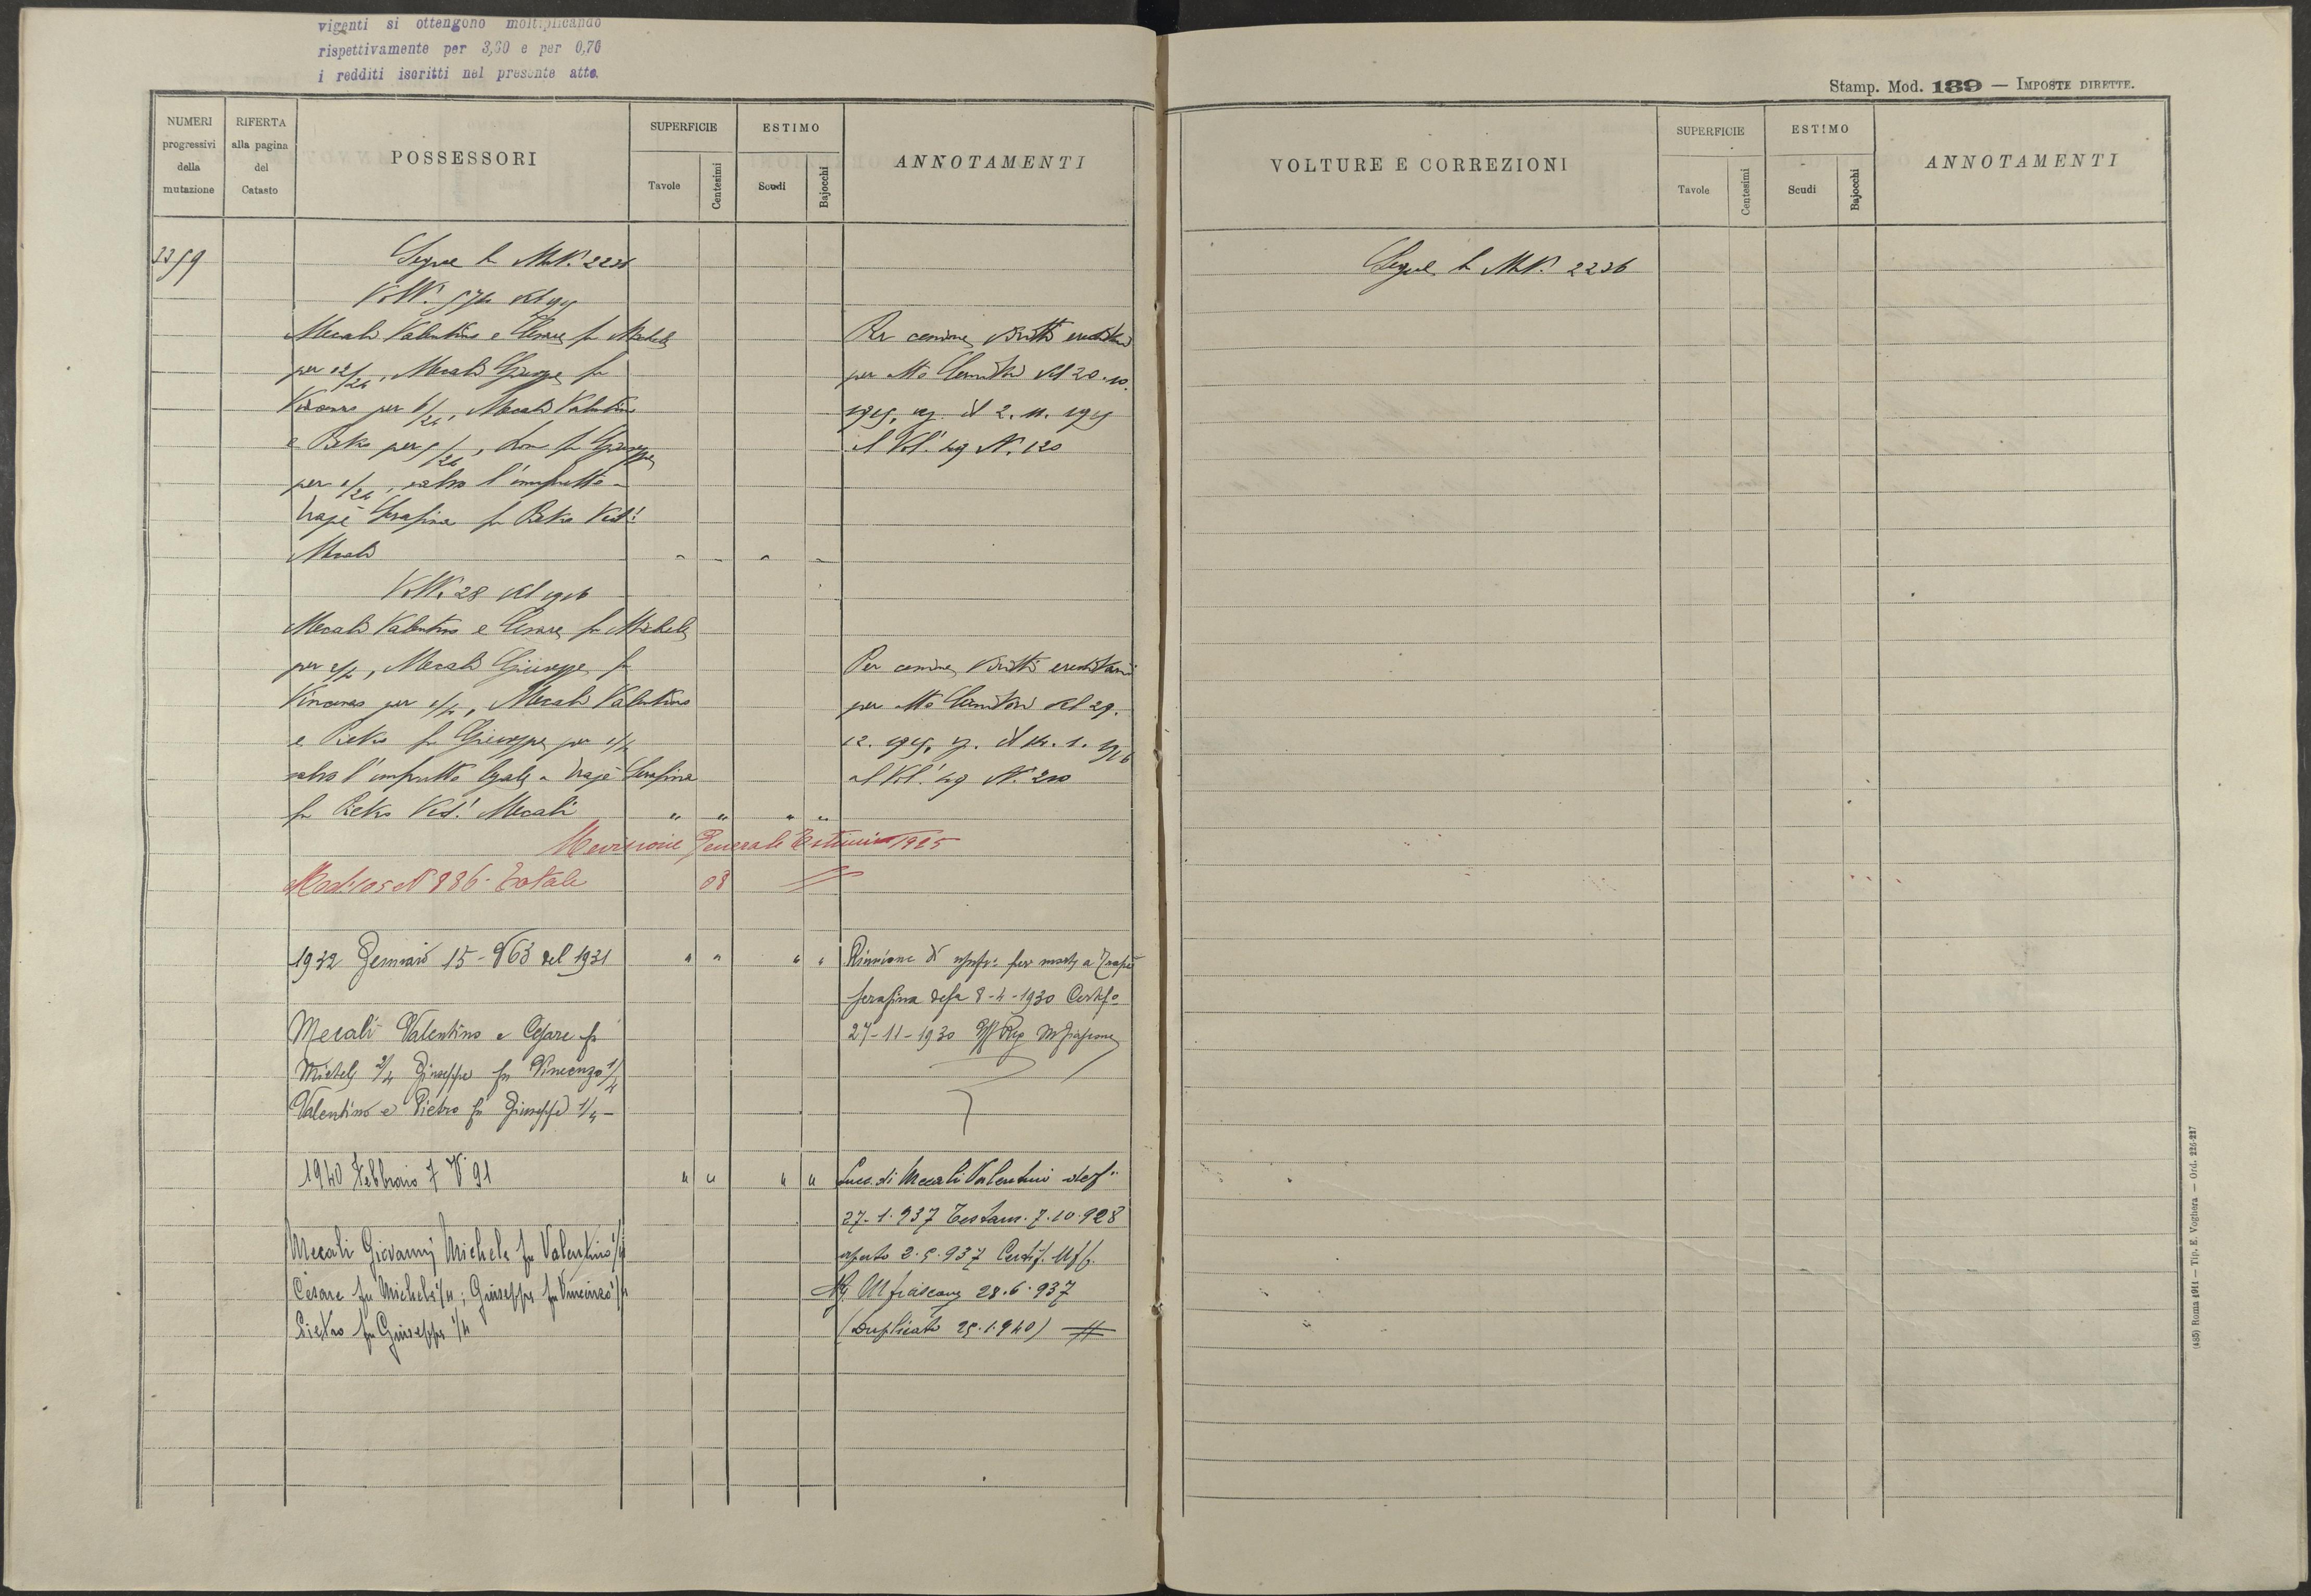 vigenti si ottengono moltiplicando
rispettivamente per 3,60 e per 0,76
i redditi iscritti nel presente atto.
NUMERI progressivi della mutazione
RIFERTA alla pagina del Catasto
POSSESSORI
SUPERFICIE
Tavole
Centesimi
ESTIMO
Scudi
Bajocchi
ANNOTAMENTI
Segue la N. 2236
Mecali Valentino e Cesare fu Michele
per 12/24, Mecali Giuseppe fu
Vincenzo per 6/24, Mecali Valentino
e Pietro per 5/24, fu Giuseppe
per 1/24, salvo l'usufrutto
Trapè Serafina fu Pietro Ved.
Mecali
V. N. 28 del 1916
Mecali Valentino e Cesare fu Michele
per 2/4, Mecali Giuseppe fu
Vincenzo per 1/4, Mecali Valentino
e Pietro fu Giuseppe per 1/4
salvo l'usufrutto legale a Trapè Serafina
fu Pietro Ved. Mecali " " " "
Revisione Generale Estimi 1925
Mod. 105 N 886 - Totale 08
1932 Gennaio 15 - N 63 del 1931 " " " "
Mecali Valentino e Cesare fu
Michele 2/4 Giuseppe fu Vincenzo 1/4
Valentino e Pietro fu Giuseppe 1/4 -
1940 Febbraio 7 N 91 " " " "
Mecali Giovanni Michele fu Valentino 1/4
Cesare fu Michele 1/4; Giuseppe fu Vincenzo 1/4
Pietro fu Giuseppe 1/4
Per cessione diritti ereditari
per atto del 20.10.
1915, reg. il 2.11.1915
al Vol. 49 N. 120
Per cessione diritti ereditari
per atto del 29.
12.1915, reg. il 14.1.1916
al Vol. 49 N. 210
Riunione di usuf. per morte a Trapè
Serafina defa 8-4-1930 Certifo
27-11-1930 Uff Reg Mfiascone
Succ. di Mecali Valentino def.
27-1-937 Testam. 7.10.928
aperto 2.5.937 Certif. Uff.
Rg. Mfiascone 28.6.937
(Duplicato 25.1.940)
Stamp. Mod. 189 — IMPOSTE DIRETTE.
VOLTURE E CORREZIONI
SUPERFICIE
Tavole
Centesimi
ESTIMO
Scudi
Bajocchi
ANNOTAMENTI
Segue la N. 2236
(485) Roma 1911 — Tip. E. Voghera — Ord. 226-227